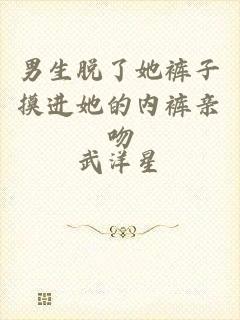 男生脱了她裤子
摸进她的内裤亲
吻
武洋星